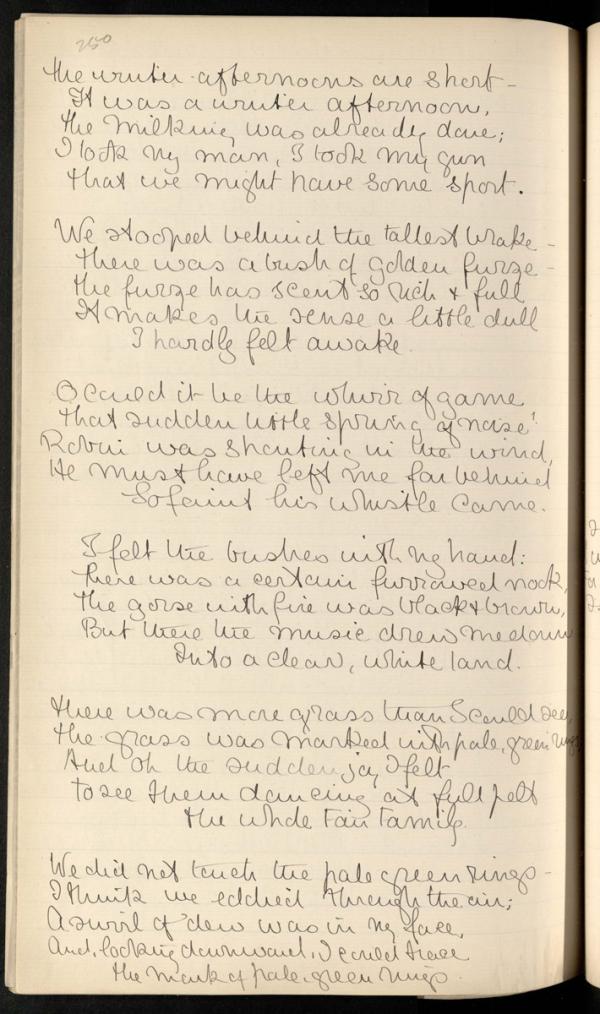 250
The winter afternoons are short –
It was a winter afternoon,
The milking was already done;
I took my man, I took my gun
That we might have some sport.
We stooped behind the tallest brake –
There was a bush of golden furze –
The furze has scent so rich & full
It makes the sense a little dull
I hardly felt awake.
O could it be the whirr of game
That sudden little spring of noise!
Robin was shouting in the wind,
He must have left me far behind
So faint his whistle came.
I felt the bushes with my hand:
There was a certain furrowed rock,
The gorse with fire was black & brown,
But there the music drew me down
Into a clear, white land.
There was more grass than I could see,
The grass was marked with pale, green rings
And oh the sudden joy I felt
To see them dancing at full pelt
The whole Fairy Family.
We did not touch the pale green rings –
I think we eddied through the air;
A swirl of dew was in my face,
And, looking downward, I could trace
The mark of pale green rings.